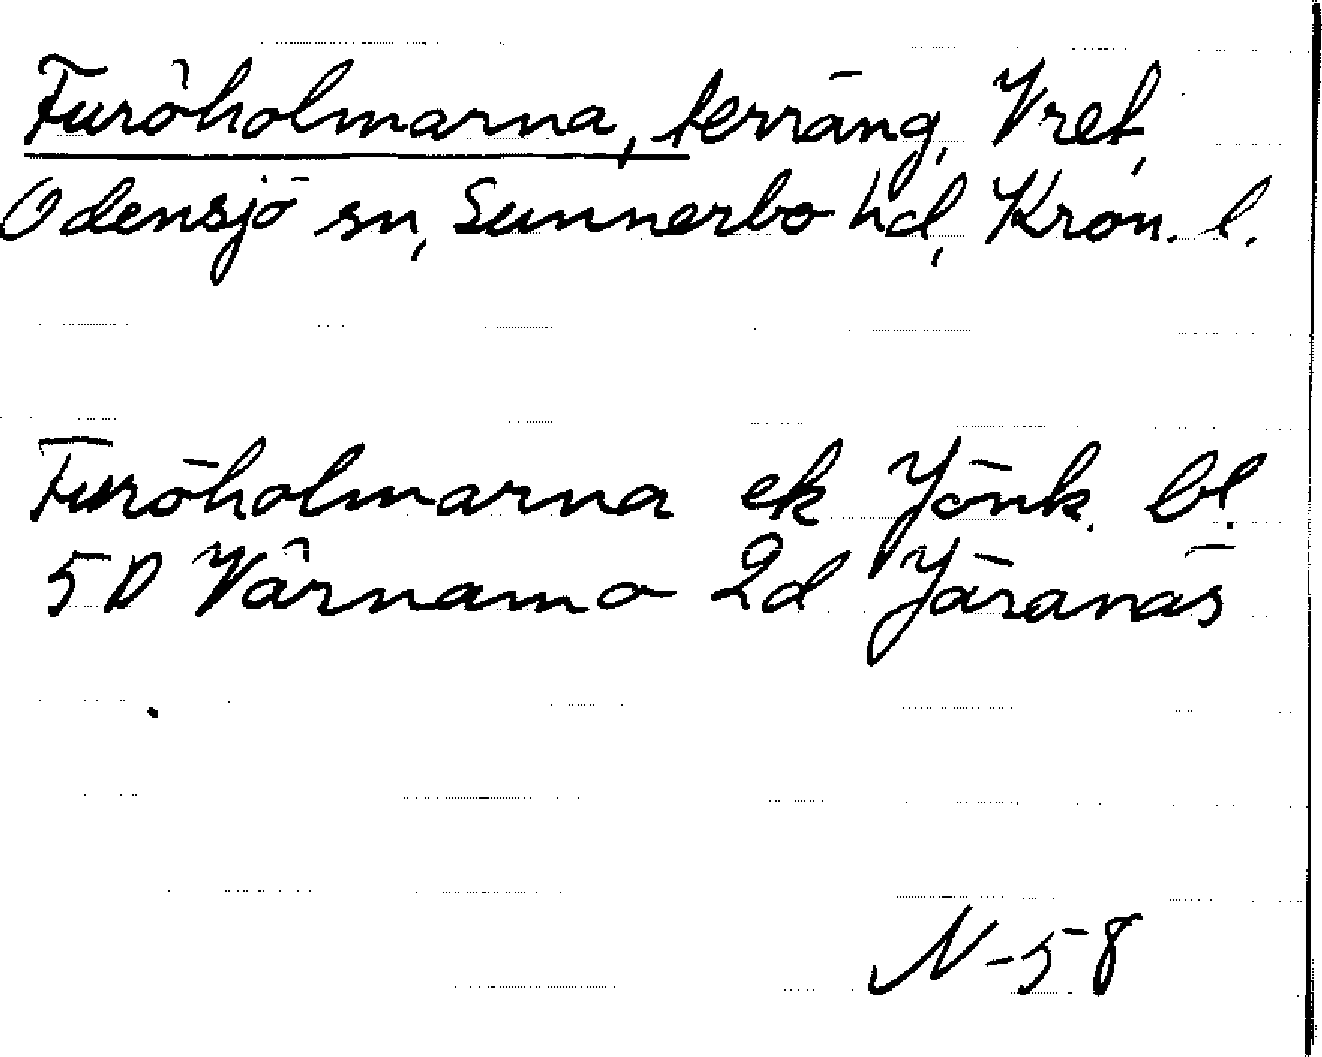 Furöholmarna, terräng, Vret,
Odensjö sn, Sunnerbo hd, Kron. l.
Furöholmarna ek Jönk. bl.
5D Värnamo 2d Järanäs
N-58